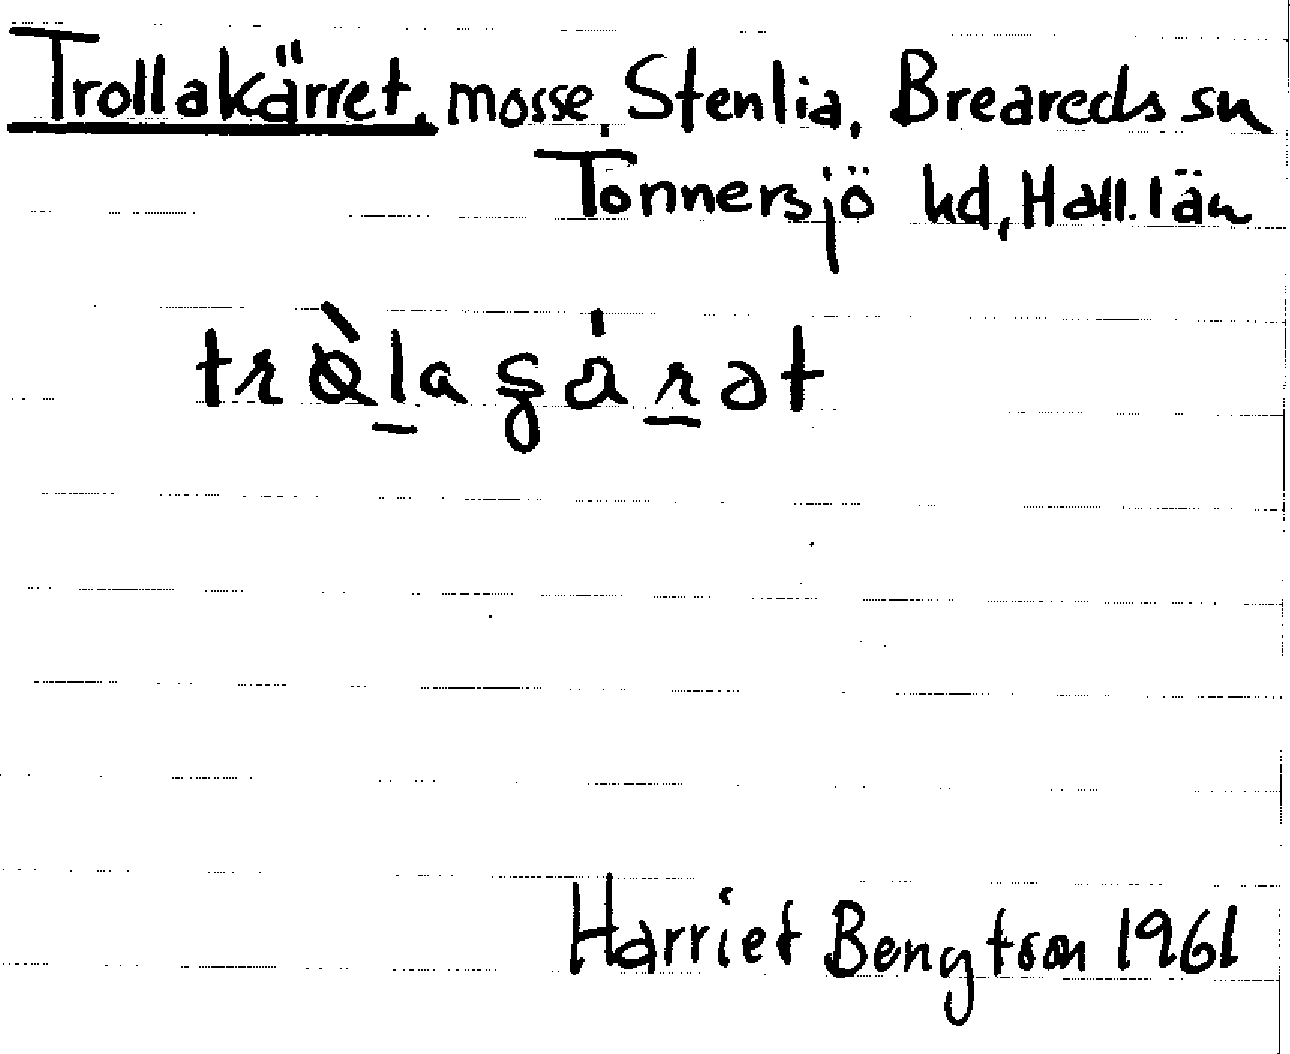 Trollakärret, mosse, Stenlia, Breareds sn
Tönnersjö hd, Hall. län
Harriet Bengtson 1961